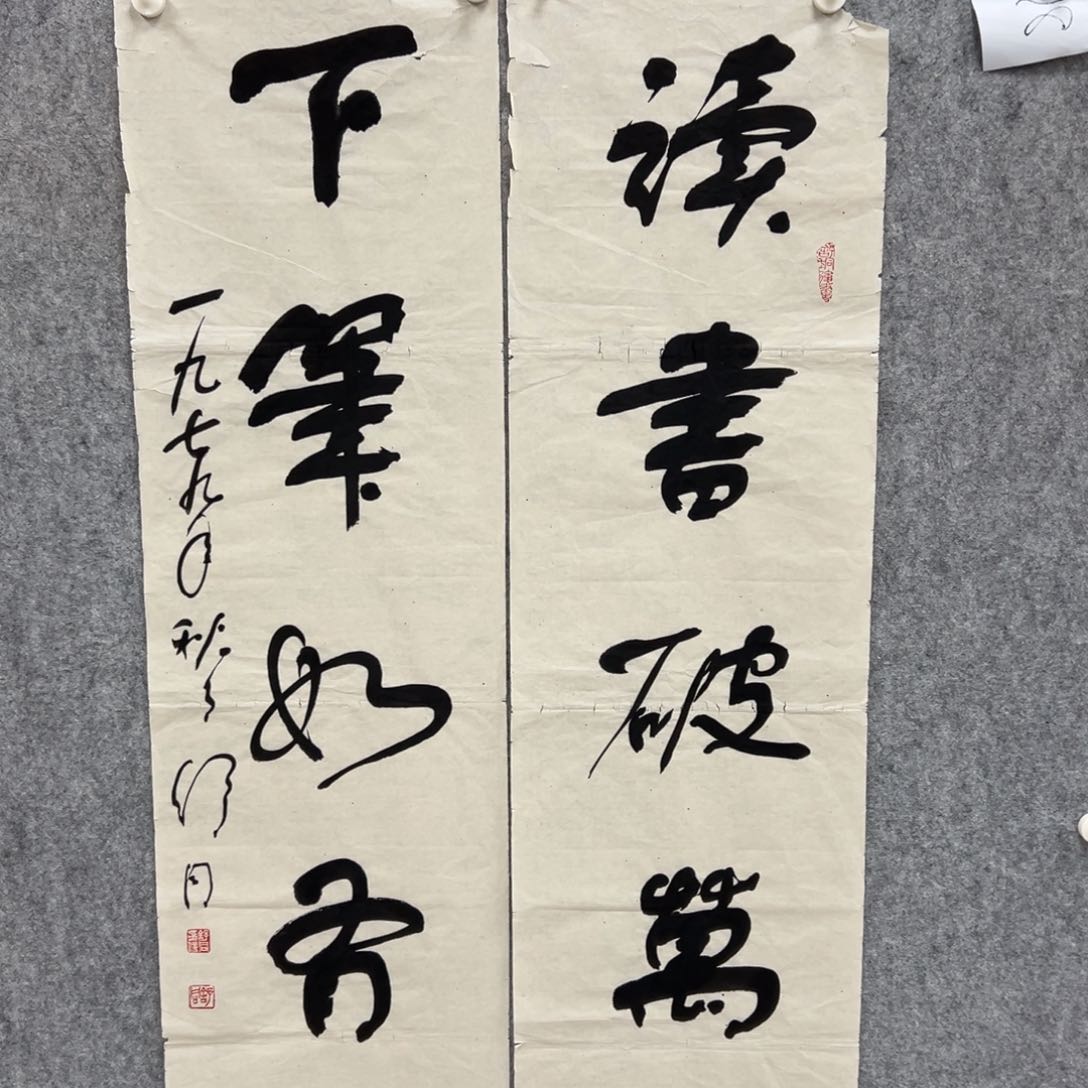 讀書破萬
下筆如有
一九七九年秋
舒同